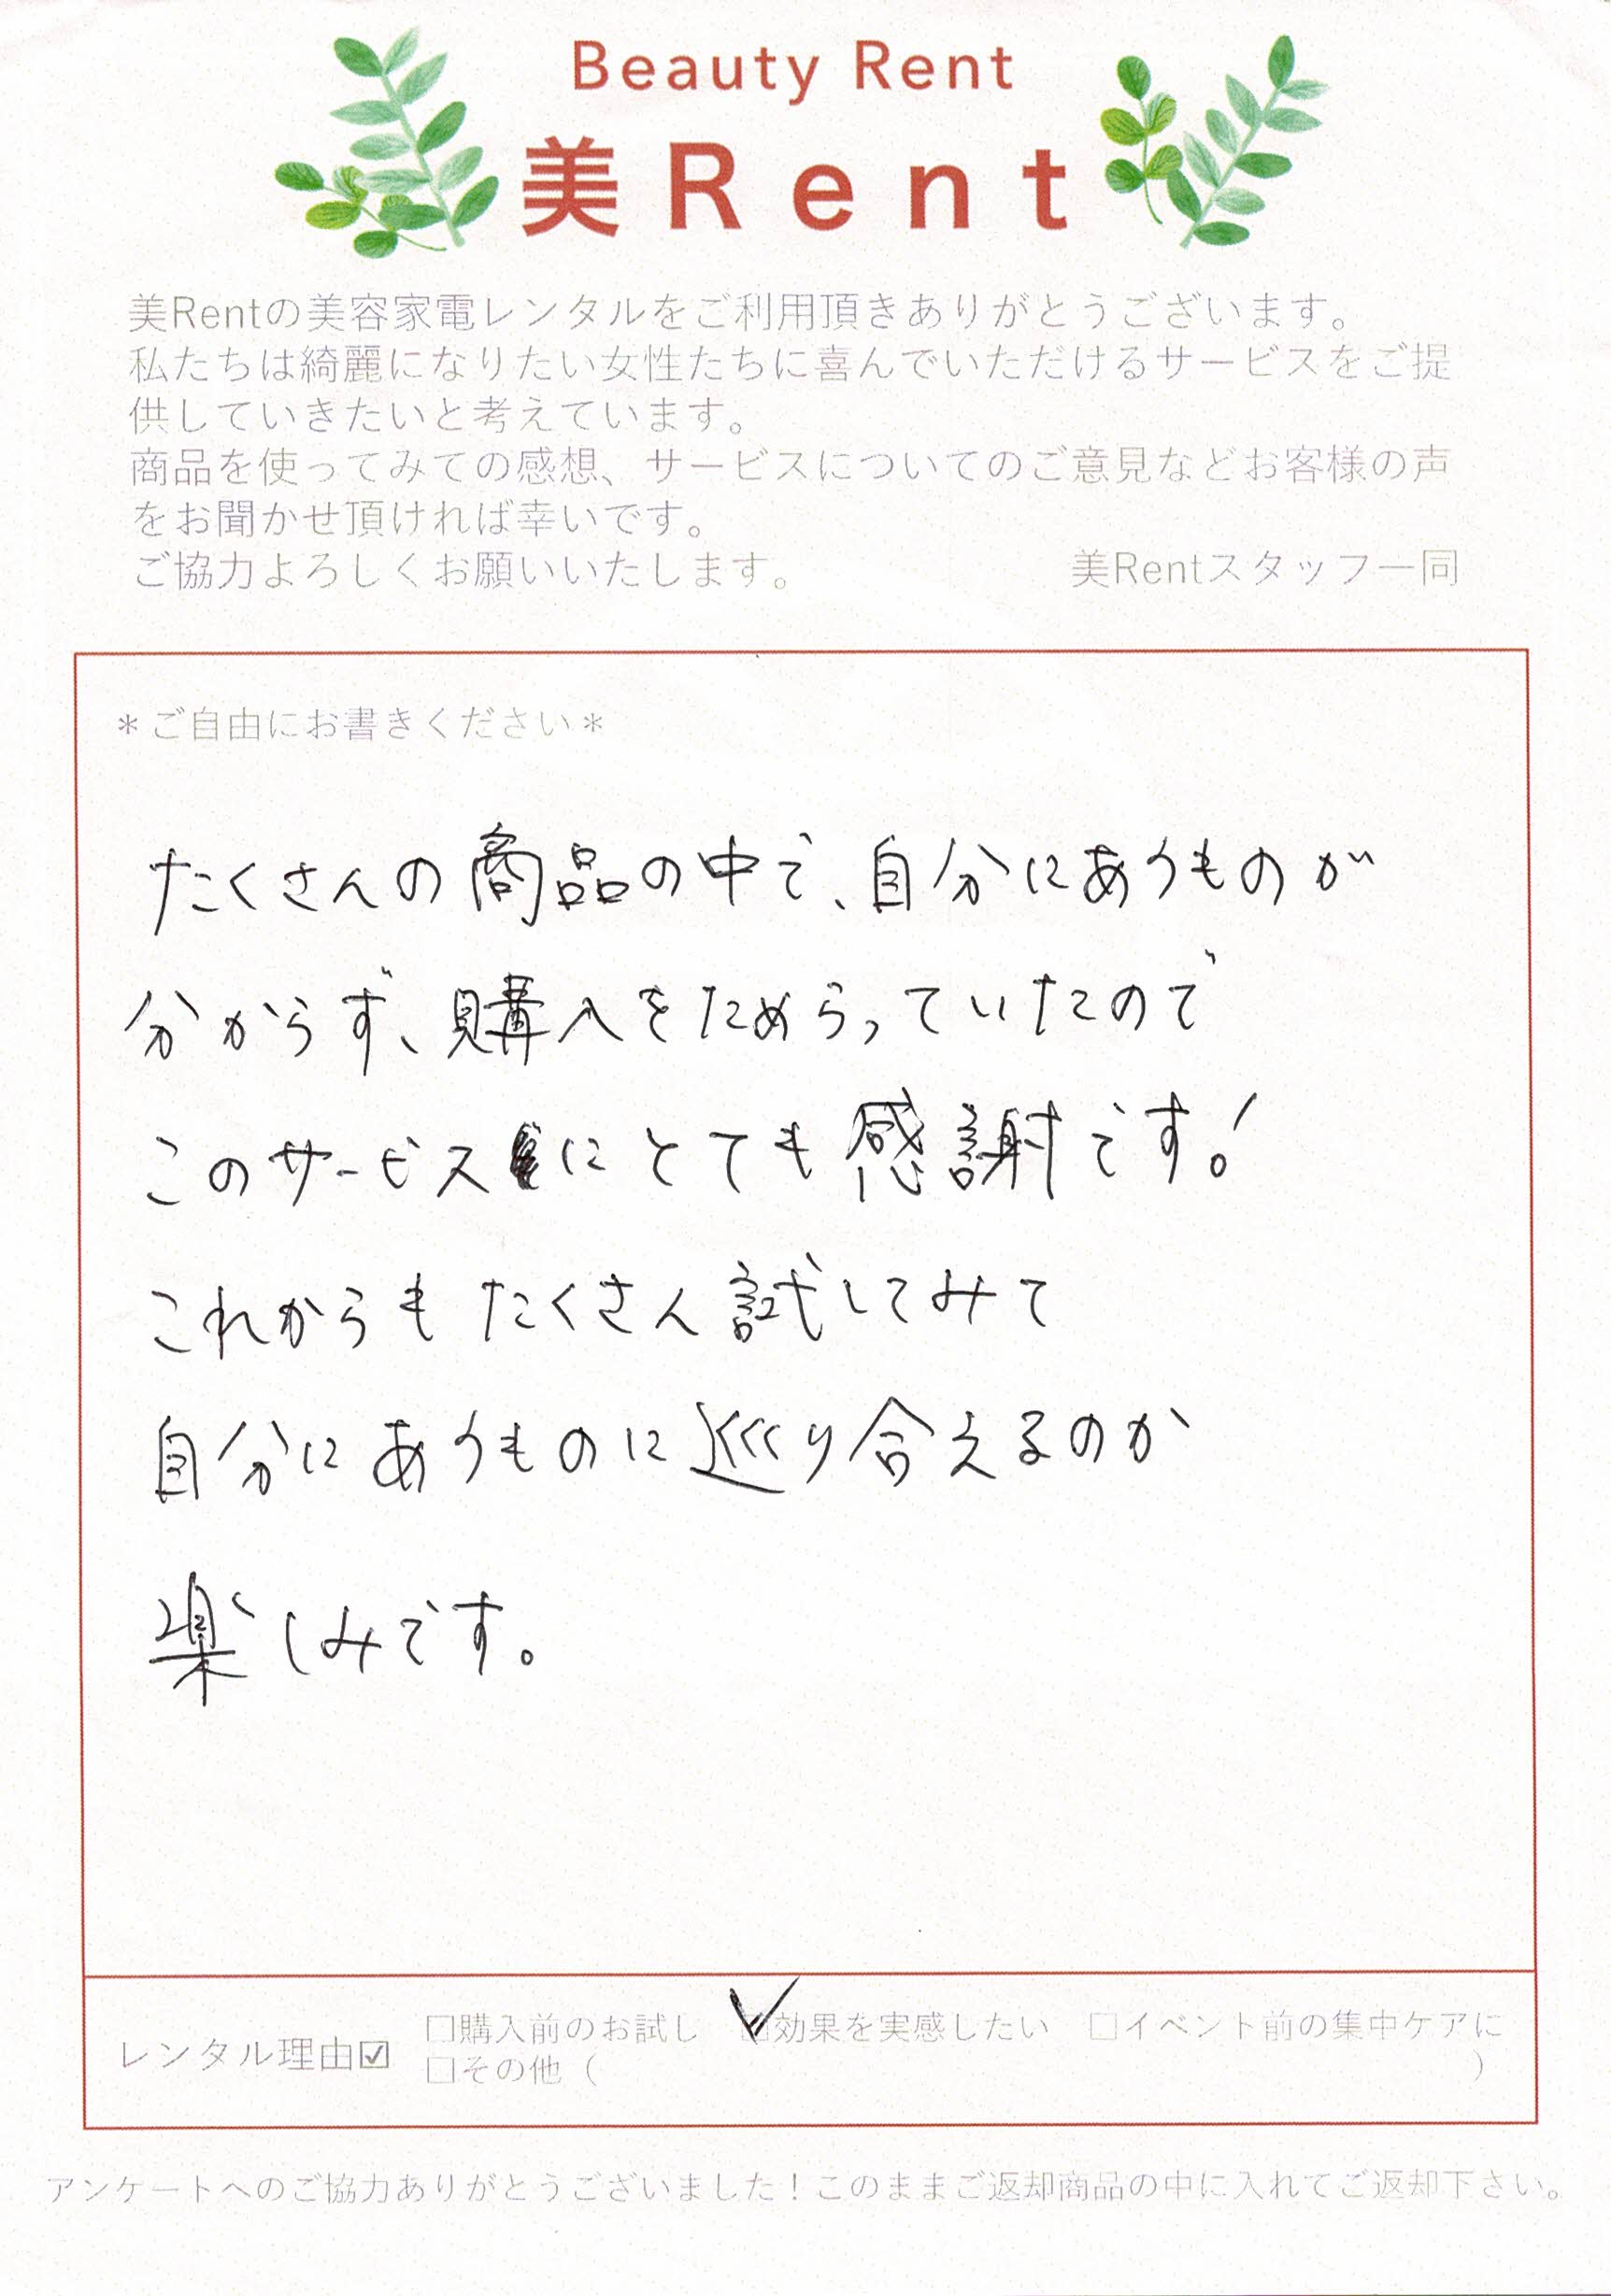 Beauty Rent
美Rent
美Rentの美容家電レンタルをご利用頂きありがとうございます。
私たちは綺麗になりたい女性たちに喜んでいただけるサービスをご提
供していきたいと考えています。
商品を使ってみての感想、サービスについてのご意見などお客様の声
をお聞かせ頂ければ幸いです。
ご協力よろしくお願いいたします。 美Rentスタッフ一同
＊ご自由にお書きください＊
たくさんの商品の中で、自分にあうものが
分からず、購入をためらっていたので
このサービスにとても感謝です!
これからもたくさん試してみて
自分にあうものに巡り合えるのか
楽しみです。
レンタル理由☑ □購入前のお試し ☑効果を実感したい □イベント前の集中ケアに
□その他（ ）
アンケートへのご協力ありがとうございました！このままご返却商品の中に入れてご返却下さい。